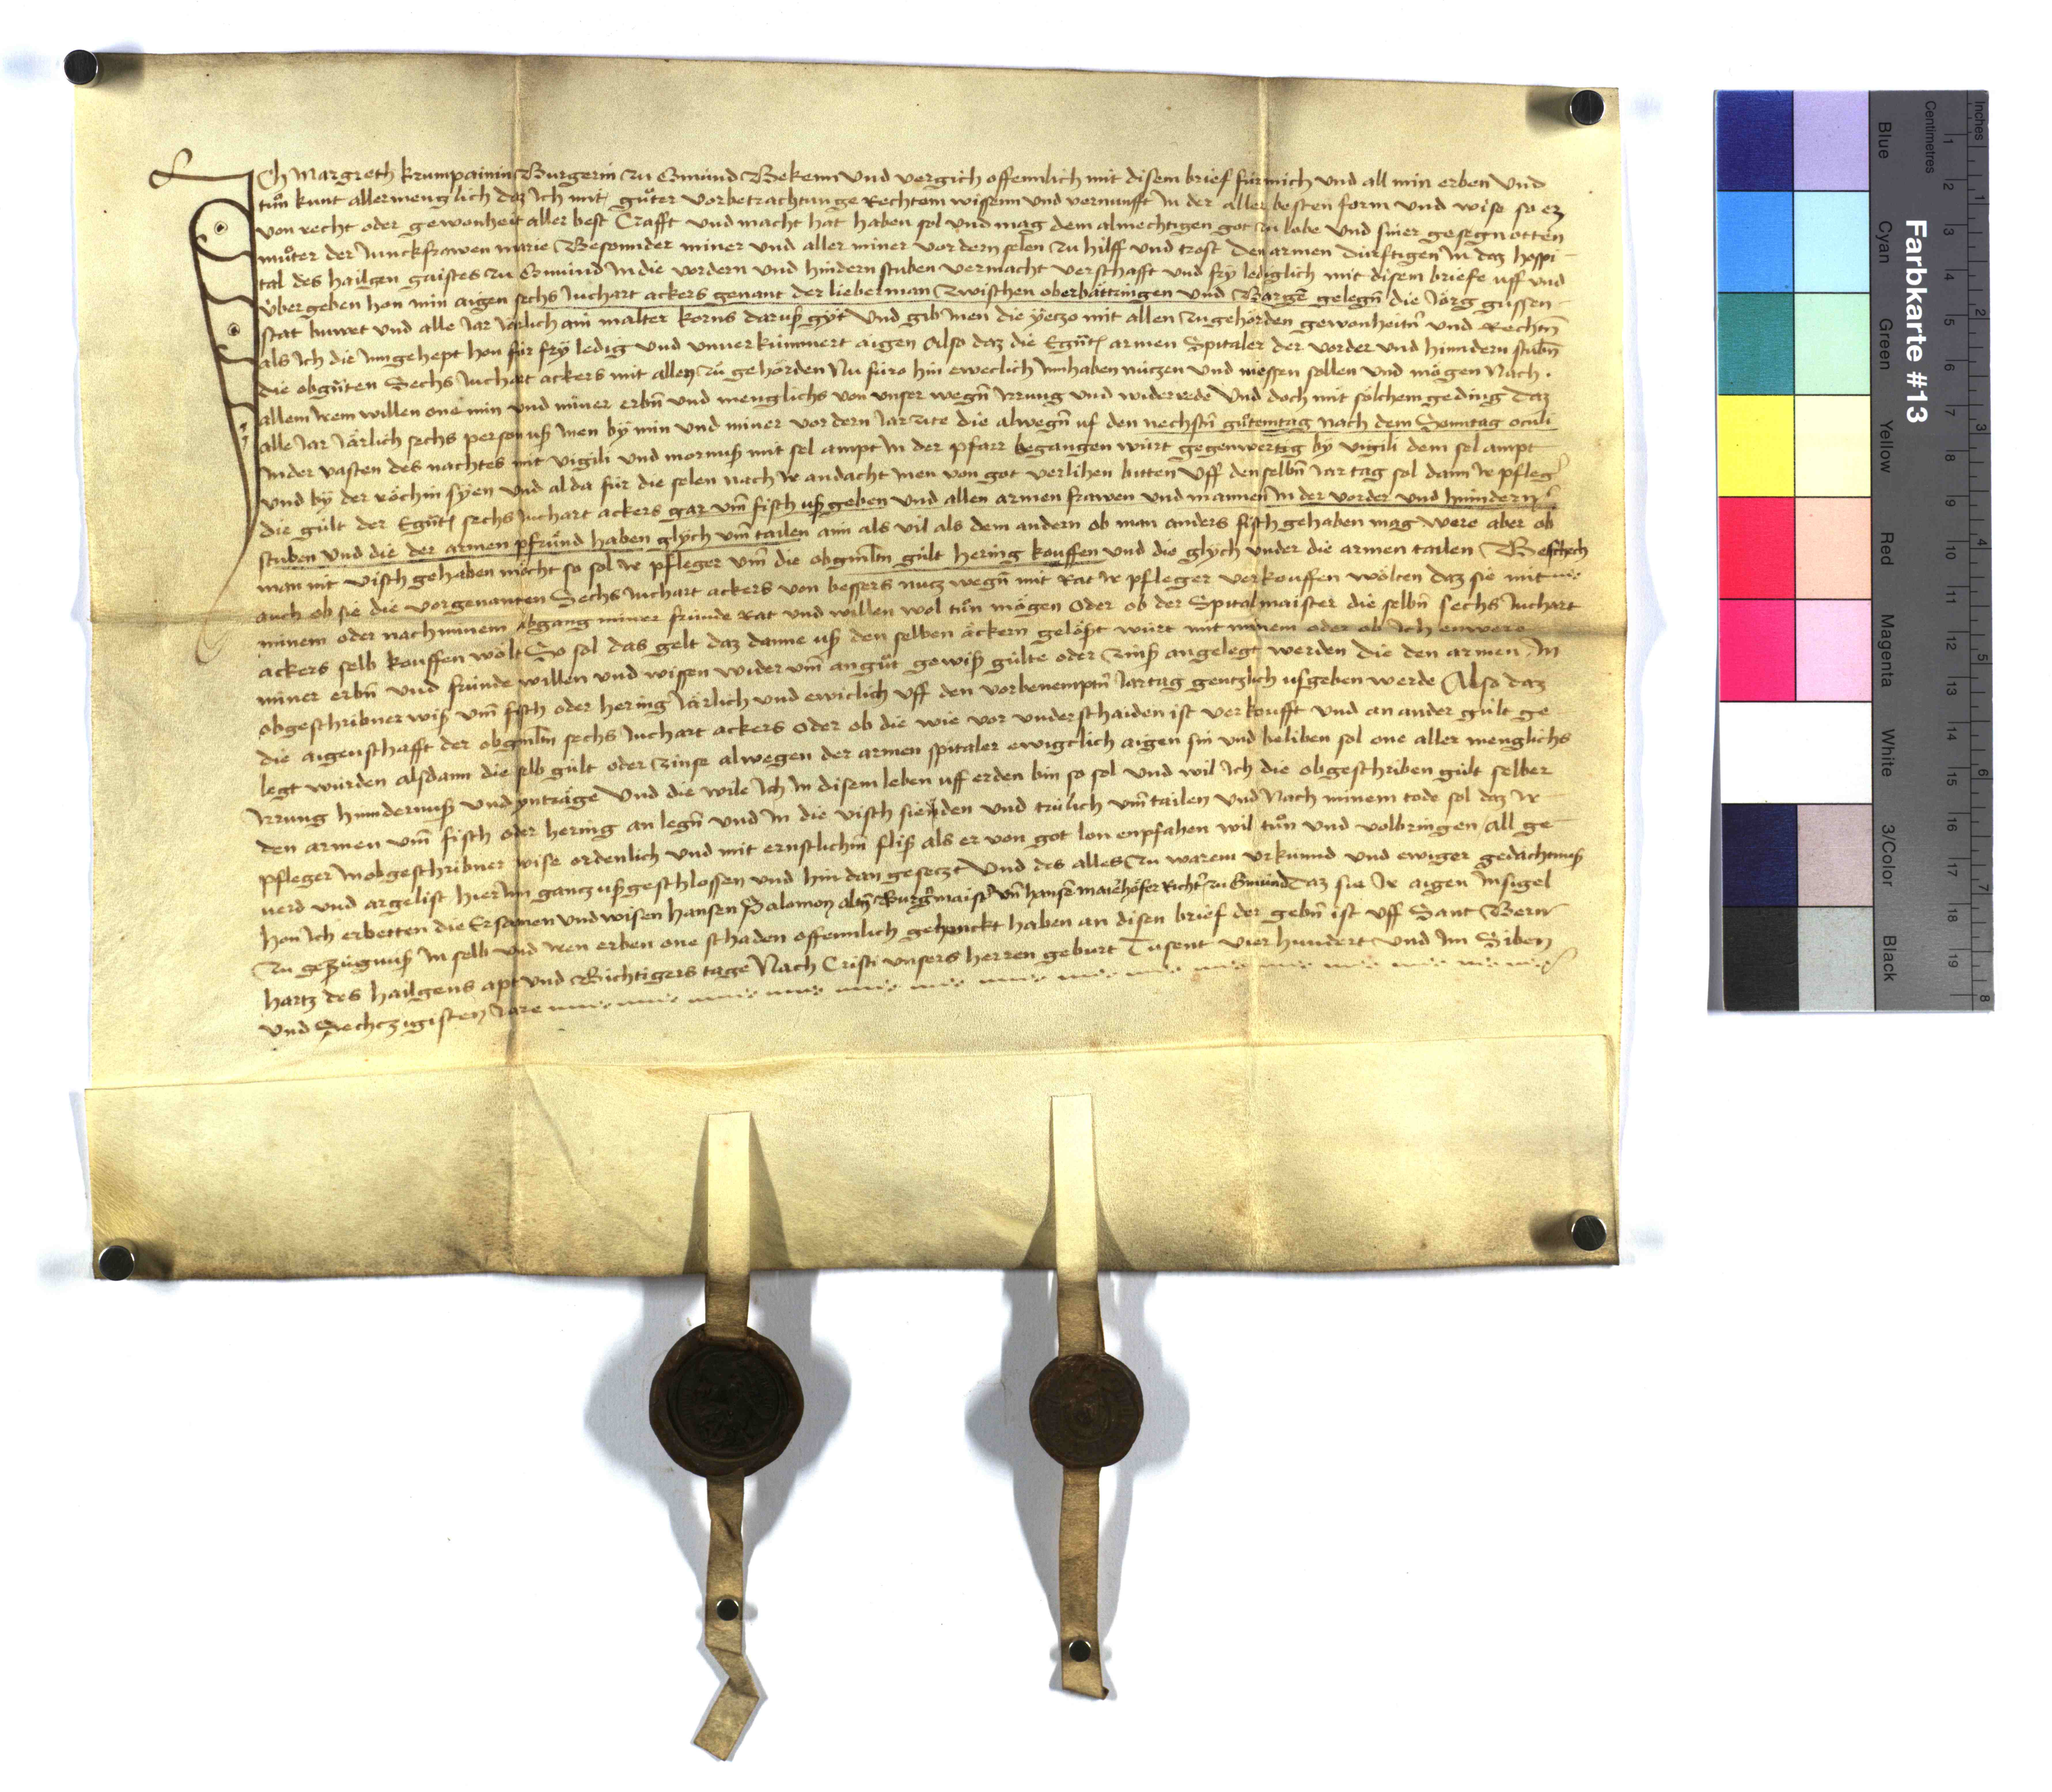 Ich Margreth krumpainin Burgerin zu Gmünd Bekenn und vergich offennlich mit disem brief für mich und all min erben und
tůn kunt allermenglich daz Ich mit gůter vorbetrachtunge Rechtem wissenn und vernunfft In der aller besten form und wise so ez
von recht oder gewonheit aller best Crafft und macht hat haben sol und mag dem almechtigen got zu lobe und siner gesegnotten
můter der Junckfrawen marie Besonnder miner und aller miner vordern selen zu hilff und trost den armen dürfftigen In daz hospi¬
tal des hailgen gaistes zu Gmünd In die vordern und hindern stuben vermacht verschafft und fry lediglich mit disem briefe uff und
übergeben hon min aigen sechs Juchart ackers genant der lieberman zwischen oberbättringen und Bargē gelegn̄ die Jörg gussen¬
stat buwet und alle Jar Järlich ain malter korns daruß gyt und gib Inen die yeczo mit allen zugehörden gewonheitn̄ und Rechtn̄
als Ich die Inngehept hon für fry ledig und unverkümmert aigen Also daz die Egn̄t armen Spitaler der vorder und hinndern stubn̄
die obgn̄ten Sechs Juchart ackers mit allen zů gehörden Nu füro hin eweclich Innhaben nüczen und niessen sollen und mögen Nach
allem Irem willen one min und miner erbn̄ und menglichs von unser wegn̄ Irrung und widerrede Und doch mit sölchem geding Daz
alle Jar Järlich sechs person uß Inen by min und miner vordern Jarzite die alwegn̄ uf den nechstn̄ gůtemtag nach dem Sonntag oculi
In der vasten des nachtes mit vigili und mornuß mit sel ampt In der pfarr begangen würt gegenwertig by vigili dem sel ampt
und by der röchin syen und alda für die selen nach Ir andacht Inen von got verlihen bitten Uff den selbn̄ Jartag sol dann Ir pfleg
die gült der Egn̄t sechs Juchart ackers gar um̄ fisch uß geben und allen armen frawen und mannen In der vorder und hindern
stuben und die der armen pfründ haben glych um̄ tailen aim als vil als dem andern ob man anders fisch gehaben mag were aber ob
man nit visch gehaben möcht so sol Ir pfleger um̄ die obgmltn̄ gült hering kouffen und die glych under die armen tailen Beschech
auch ob sie die vorgenanten Sechs Juchart ackers von bessers nucz wegn̄ mit Rat Ir pfleger verkouffen wölten daz sie mit
minem oder nach minem abgang miner fründe Rat und willen wol tůn mögen Oder ob der Spitalmaister die selbn̄ sechs Juchart
ackers selb kouffen wölt So sol das gelt daz danne uß den selben äckern gelößt würt mit minem oder ob Ich enwere
miner erbn̄ und fründe willen und wissen wider um̄ an gůt gewiß gülte oder zinß angelegt werden die den armen In
obgeschribner wiß um̄ fisch oder hering Järlich und ewiclich uff den vorbenemptn̄ Jartag gentzlich ußgeben werde Also daz
die aigenschafft der obgmltn̄ sechs Juchart ackers Oder ob die wie vor underschaiden ist verkoufft und an ander gült ge¬
legt würden alsdann die selb gült oder zinse alwegen der armen spitaler ewigclich aigen sin und beliben sol one aller menglichs
Irrung hinndernuß und ynträge Und die wile Ich In disem leben uff erden bin so sol und wil Ich die obgeschriben gült selber
den armen um̄ fisch oder hering an legn̄ und In die visch sienden und trülich um̄ tailen und Nach minem tode sol daz Ir
pfleger In obgeschribner wise ordenlich und mit ernstlichm̄ fliß als er von got lon enpfahen wil tůn und volbringen All ge¬
verd und argelist hier Inn gancz ußgeschlossen und hin dan geseczt Und des alles zu warem Urkünnd und ewiger gedächtnuß
hon Ich erbetten die Ersamen und wisen hansen Salomon altn̄ Burgermaister un̄ hansen maierhöfer Richter zu Gmünd Daz sie Ir aigen Insigel
zu gezügnuß In selb und Iren erben one schaden offennlich gehenckt haben an disen brief der gebn̄ ist uff Sant Bern¬
hartz des hailgens apt und Bichtigers tage Nach Cristi unsers herren geburt Tusent vierhundert und Im Siben
und Sechczigisten Jare
Farbkarte #13
Blue
Cyan
Green
Yellow
Red
Magenta
White
3/Color
Black
Centimetres
Inches
1
2
3
4
5
6
7
8
9
10
11
12
13
14
15
16
17
18
19
1
2
3
4
5
6
7
8